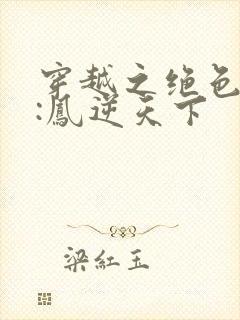 穿越之绝色
:鳳逆天下
梁紅玉